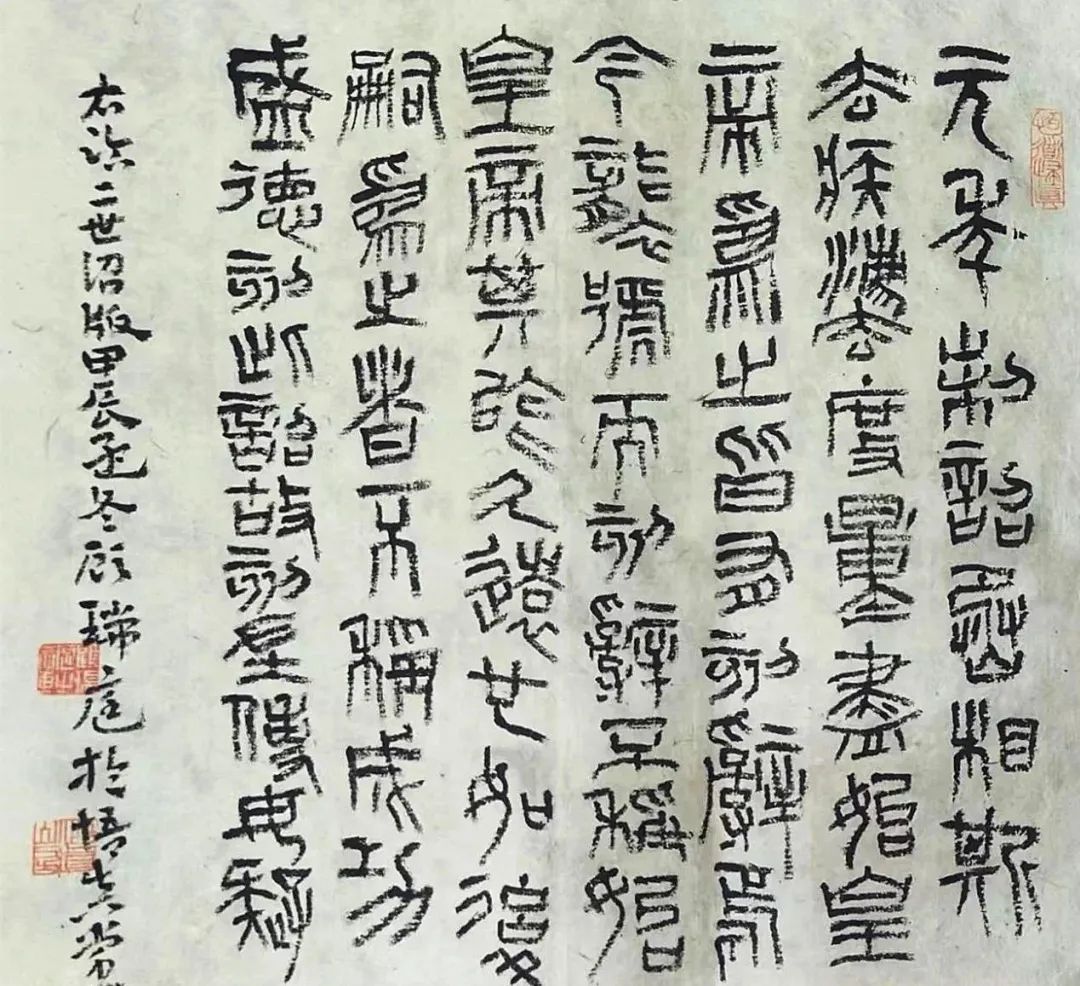 元年制詔丞相斯
去疾灋度量盡始皇
帝為之皆有刻辭焉
今襲號而刻辭不稱始
皇帝其於久遠也如後
嗣為之者不稱成功
盛德刻此詔故刻左使毋疑
右臨二世詔版甲辰孟冬顧瑞庭於悟真堂